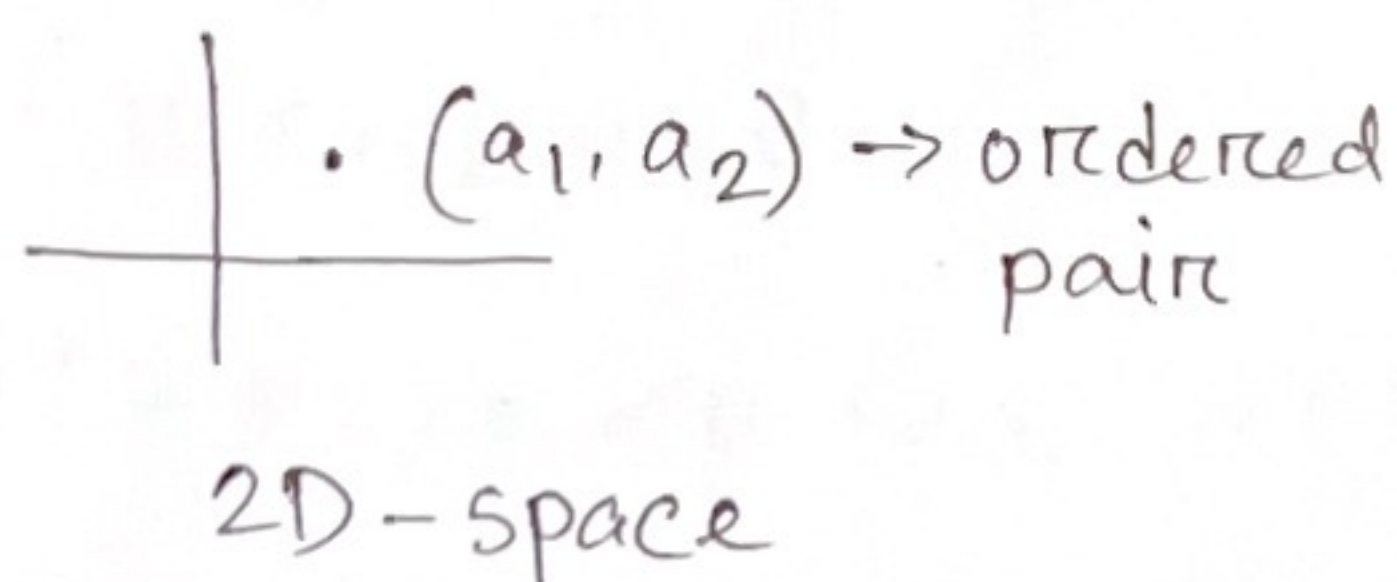 (a₁, a₂) → ordered
pair
2D - space